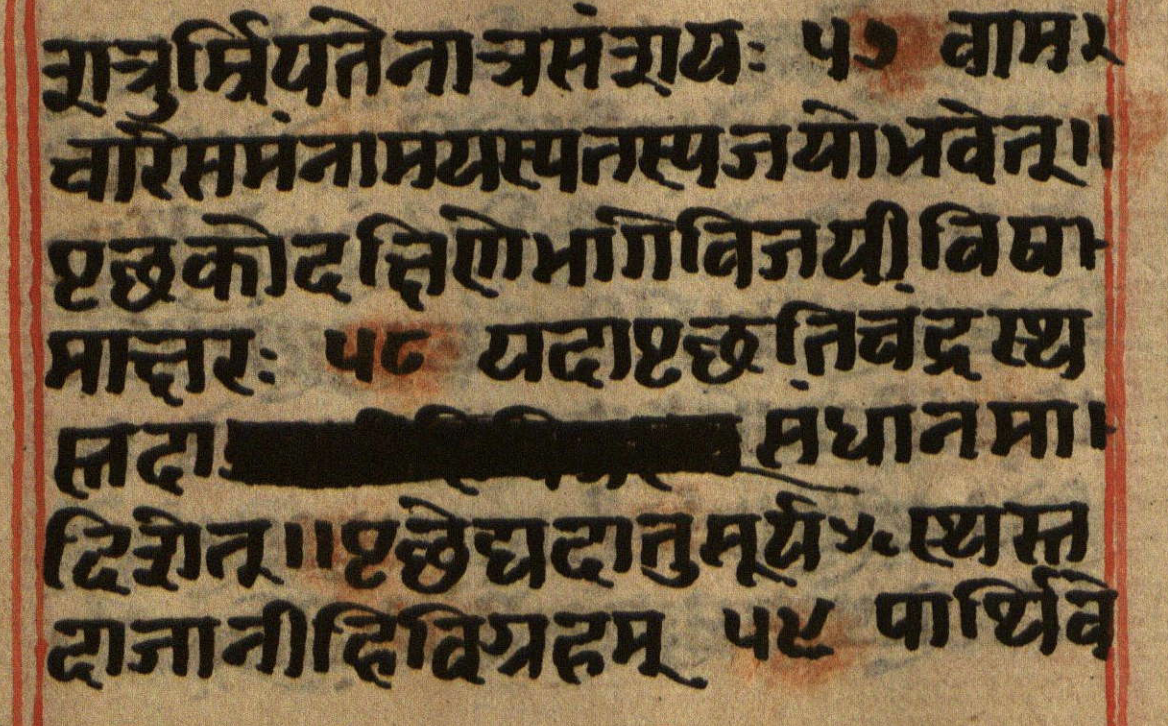 शत्रुर्म्रियतेनात्रसंशयः ५७ वाम
चारेसमंनामयस्यतस्यजयोभवेत्॥
पृछकोदक्षिणेभागेविजयीविषा
माक्षरः ५८ यदापृछतिचंद्रस्थ
स्तदा संधानमा
दिशेत्॥पृछेद्यदातुसूर्यस्थस्त
दाजानीहिविग्रहम् ५९ पार्थिवे